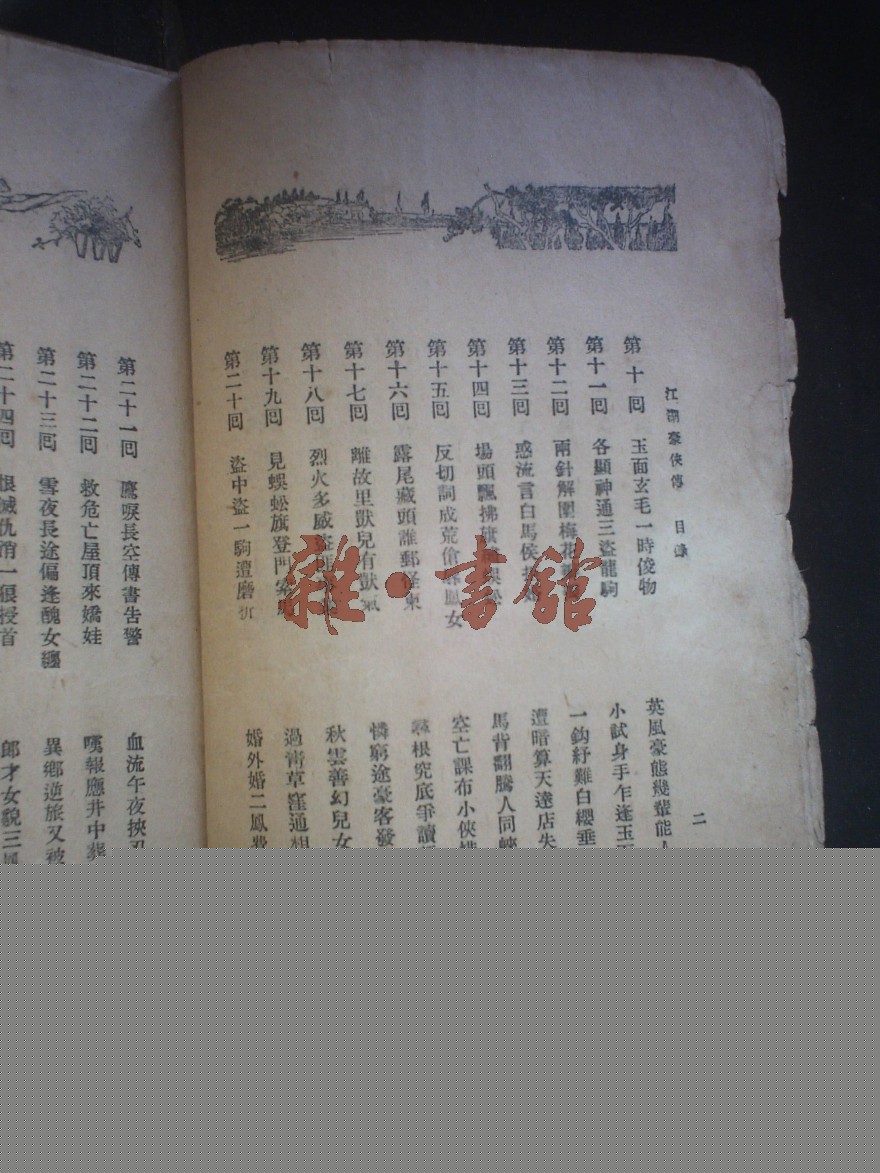 江湖豪俠傳 目錄
二
第十回 玉面玄毛一時俊物 英風豪態幾輩能
第十一回 各顯神通三盜龍駒 小試身手乍逢玉
第十二回 兩針解圍梅花 一鈎紓難白纓垂
第十三回 惑流言白馬侯 遭暗算天達店失
第十四回 場頭飄拂旗 馬背翻騰人同
第十五回 反切詞成荒傖 鳳女 空亡課布小俠
第十六回 露尾藏頭誰郵怪柬 尋根究底爭讀
第十七回 離故里獸兒有獸氣 憐窮途豪客發
第十八回 烈火多威盜 秋雲善幻兒女
第十九回 見蜈蚣旗登門 過靑草窪通
第二十回 盜中盜一駒遭磨折 婚外婚二鳳
第二十一回 鷹唳長空傳書告警 血流午夜挾刃
第二十二回 救危亡屋頂來嬌娃 嘆報應井中葬
第二十三回 雪夜長途偏逢醜女纏 異鄉逆旅又被
第二十四回 恨滅仇消一狠授首 郎才女貌三鳳
雜·書館